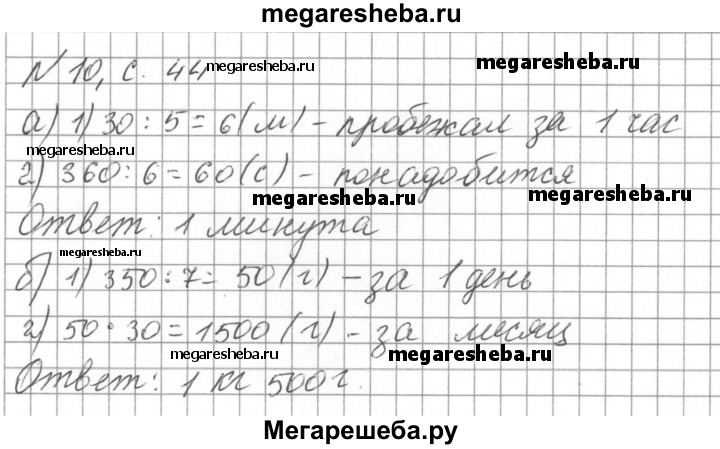 megaresheba.ru
N 10, с. 44 megaresheba.ru megaresheba.ru
а) 1) 30 : 5 = 6 (м) - пробежал за 1 час
megaresheba.ru
2) 360 : 6 = 60 (с) - понадобится
megaresheba.ru megaresheba.ru
Ответ: 1 минута
megaresheba.ru
б) 1) 350 : 7 = 50 (г) - за 1 день
2) 50 · 30 = 1500 (г) - за месяц
megaresheba.ru megaresheba.ru
Ответ: 1 кг 500 г.
Мегарешеба.ру